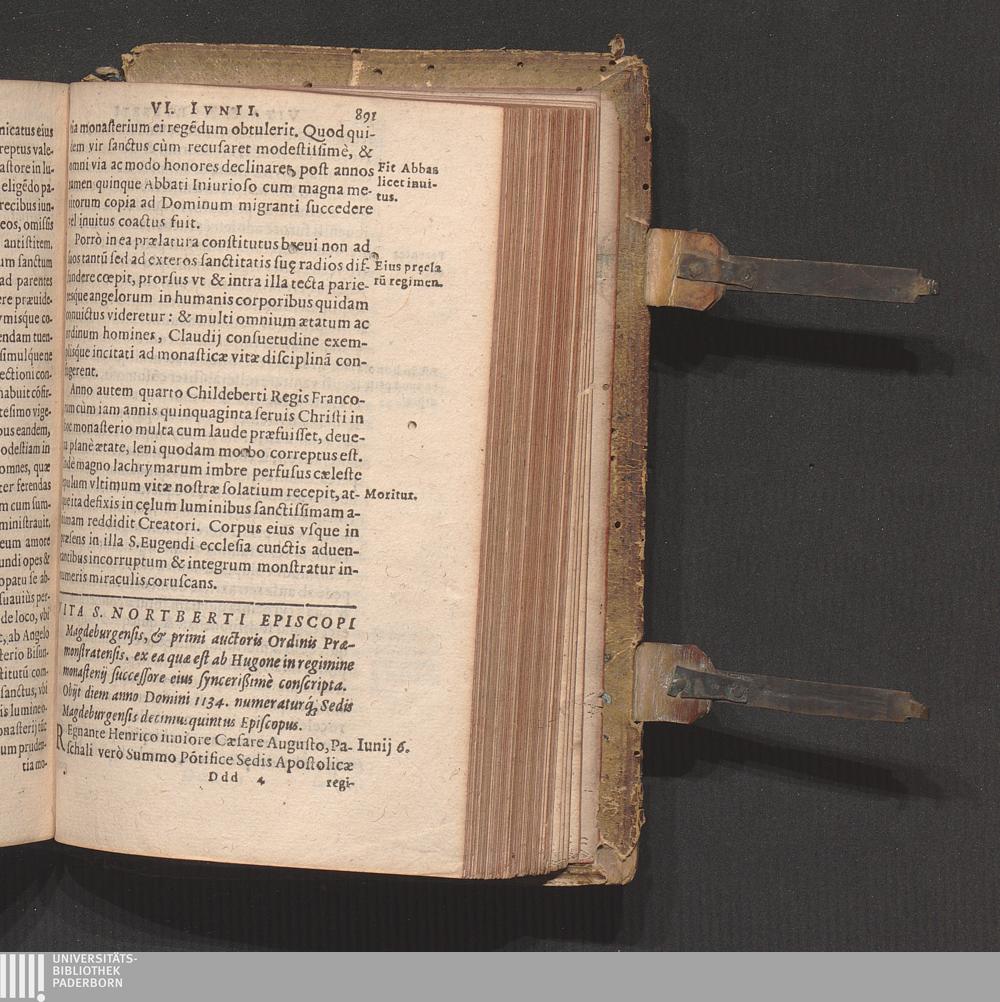 nicatus eius
reptus vale-
astore in lu-
eligēdo pa-
recibus iun-
eos, omissis
antistitem.
um sanctum
ad parentes
ere præuide-
ymisque co-
endam tuen-
simulque ne
ectioni con-
habuit cōfir-
tesimo vige-
bus eandem,
odestiam in
omnes, quæ
ter ferendas
m cum sum-
ministrauit.
eum amore
undi opes &
opatu se ab-
suauiùs per-
de loco, vbi
ab Angelo
terio Bisun-
stitutū com-
sanctus, vbi
is lumineo-
onasterij tūc
um pruden-
tia mo-
VI. IVNII. 891
ia monasterium ei regēdum obtulerit. Quod qui-
dem vir sanctus cùm recusaret modestissimè, &
omni via ac modo honores declinaret, post annos
tamen quinque Abbati Iniurioso cum magna me-
ritorum copia ad Dominum migranti succedere
vel inuitus coactus fuit.
Fit Abbas
licet inui-
tus.
Porrò in ea prælatura constitutus breui non ad
suos tantū sed ad exteros sanctitatis suę radios dif-
fundere cœpit, prorsus vt & intra illa tecta parie-
tesque angelorum in humanis corporibus quidam
conuictus videretur: & multi omnium ætatum ac
ordinum homines, Claudij consuetudine exem-
plisque incitati ad monasticæ vitæ disciplinā con-
fugerent.
Eius pręcla
rū regimen.
Anno autem quarto Childeberti Regis Franco-
rum cùm iam annis quinquaginta seruis Christi in
hoc monasterio multa cum laude præfuisset, deue-
xa planè ætate, leni quodam morbo correptus est.
Indè magno lachrymarum imbre perfusus cæleste
epulum vltimum vitæ nostræ solatium recepit, at-
que ita defixis in cęlum luminibus sanctissimam a-
nimam reddidit Creatori. Corpus eius vsque in
præsens in illa S. Eugendi ecclesia cunctis aduen-
tantibus incorruptum & integrum monstratur in-
numeris miraculis coruscans.
Moritur.
VITA S. NORTBERTI EPISCOPI
Magdeburgensis, & primi auctoris Ordinis Præ-
monstratensis. ex ea quæ est ab Hugone in regimine
monasterij successore eius syncerissimè conscripta.
Obijt diem anno Domini 1134. numeraturq; Sedis
Magdeburgensis decimusquintus Episcopus.
REgnante Henrico iuniore Cæsare Augusto, Pa-
schali verò Summo Pōtifice Sedis Apostolicæ
Iunij 6.
Ddd 4 regi-
UNIVERSITÄTS-
BIBLIOTHEK
PADERBORN